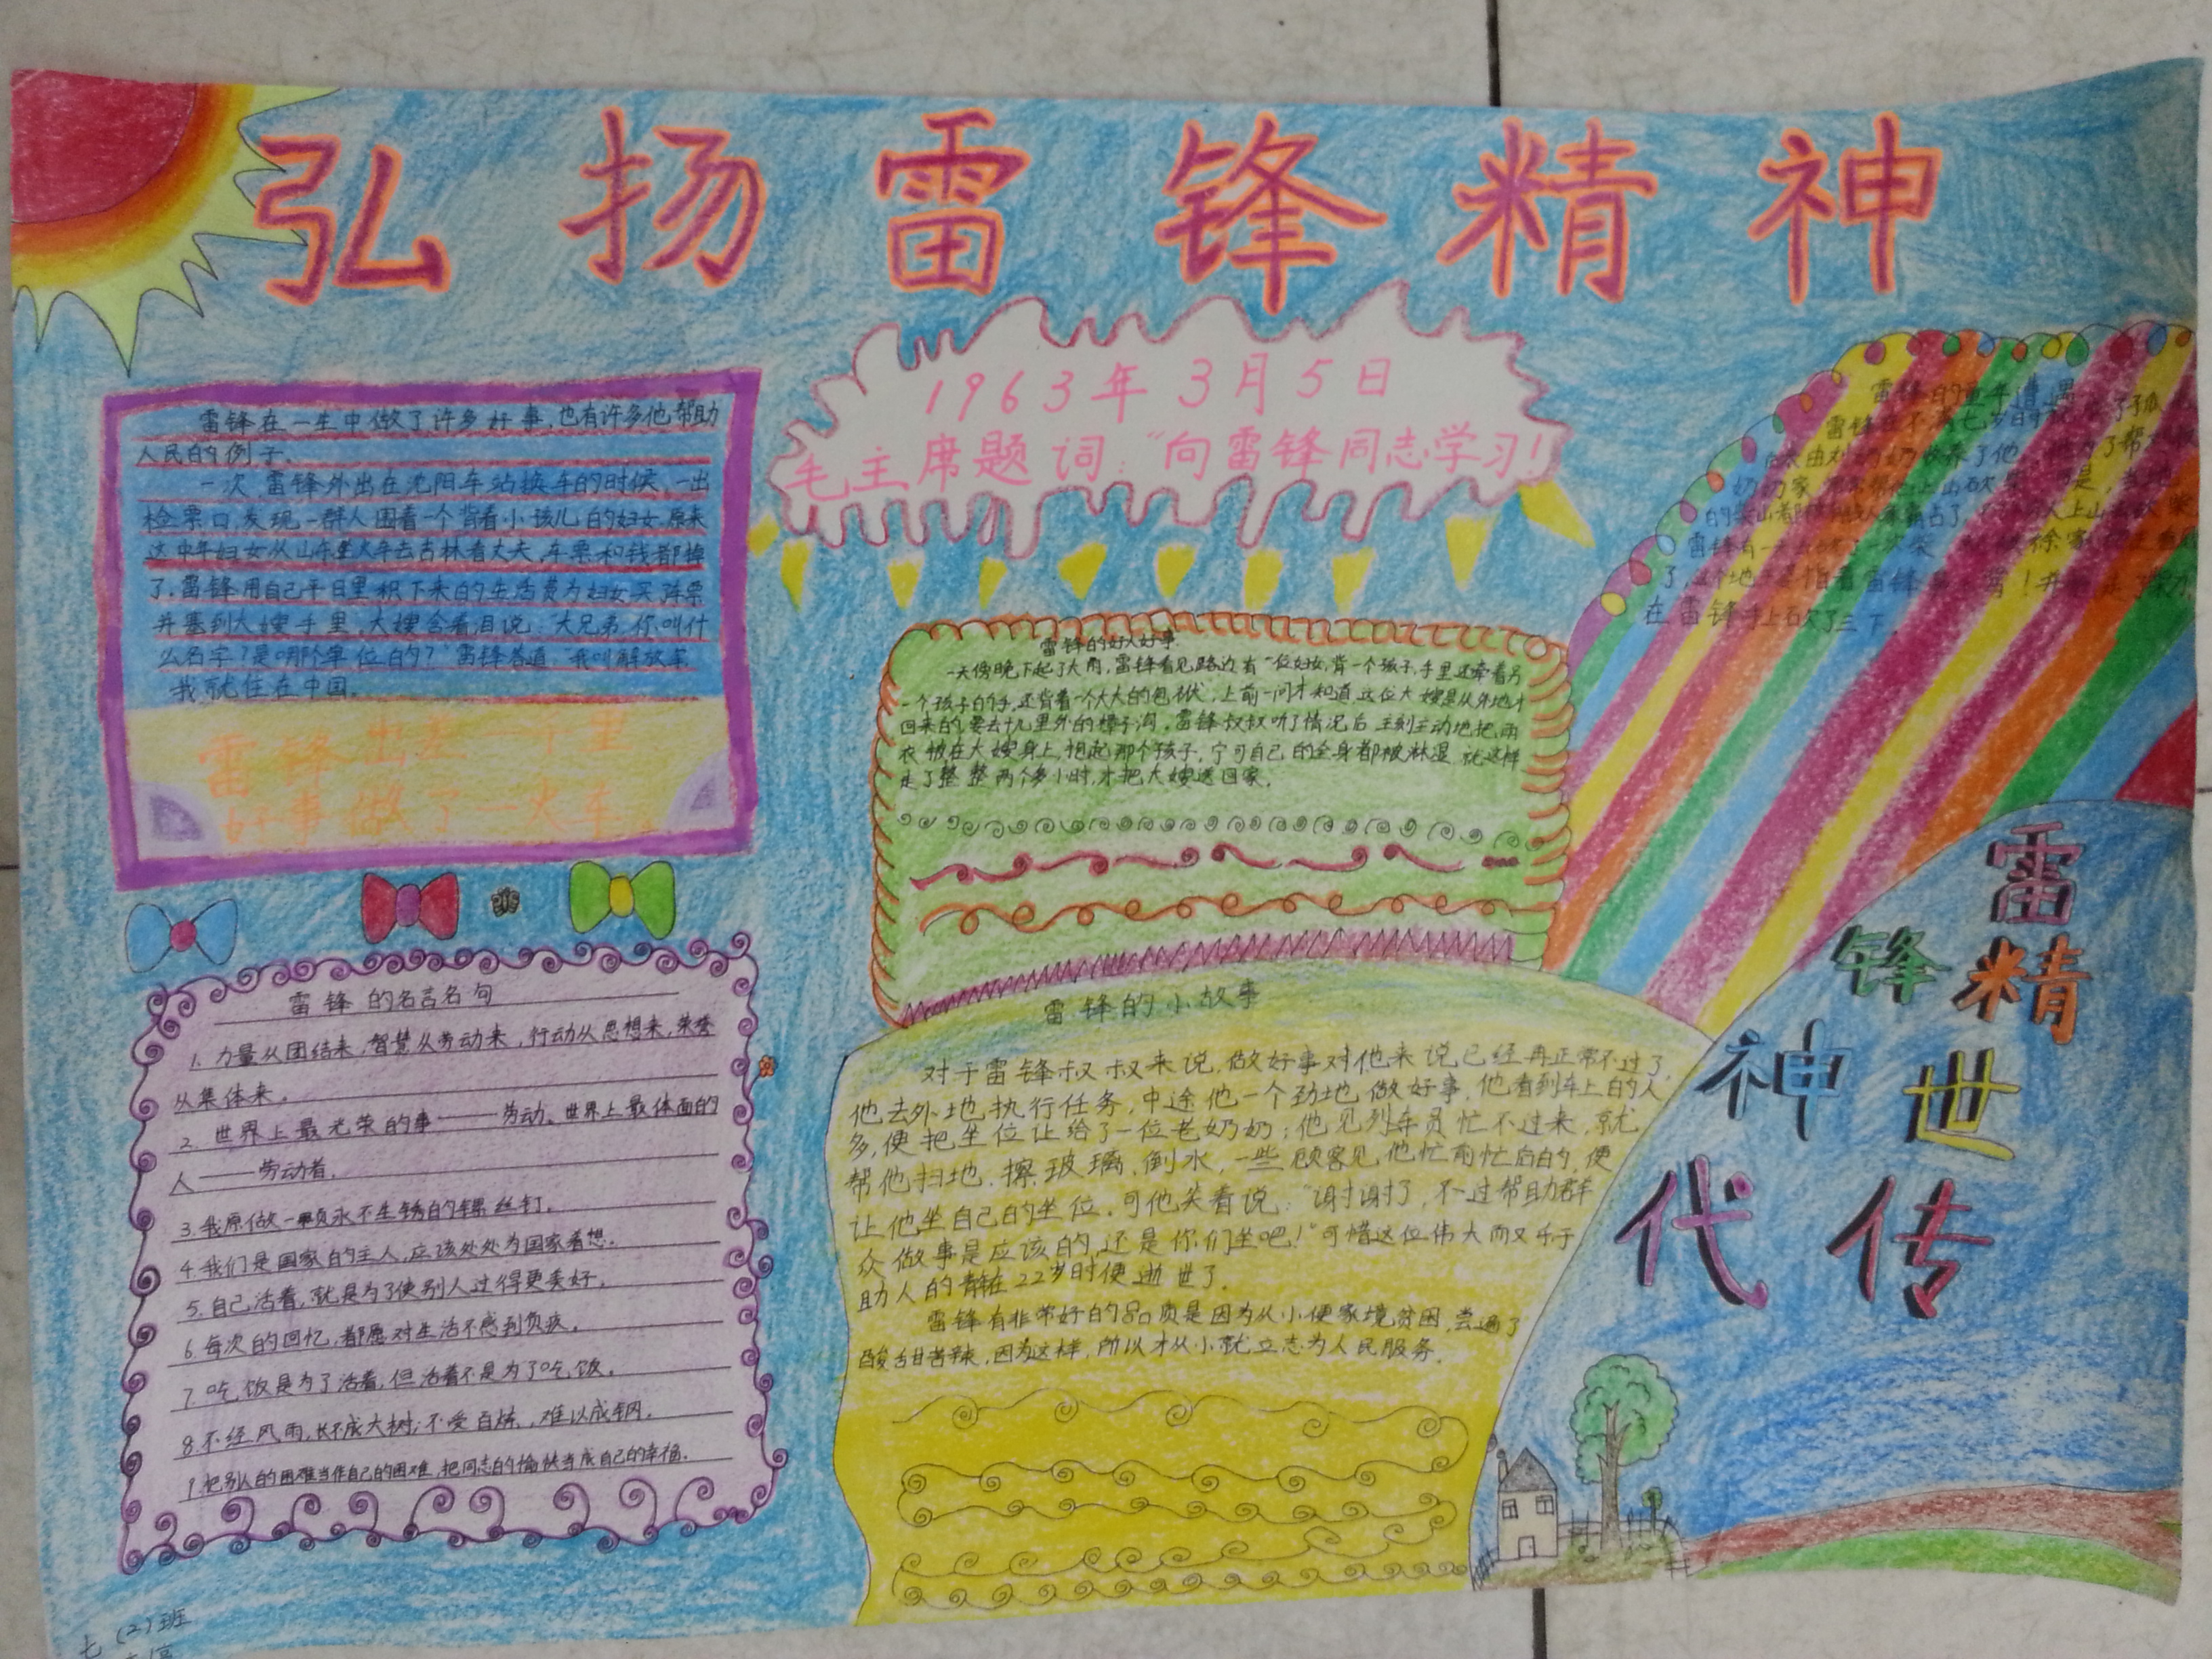 弘扬雷锋精神
1963年3月5日
毛主席题词:“向雷锋同志学习!
雷锋在一生中做了许多好事,也有许多他帮助
人民的例子.
一次,雷锋外出在沈阳车站换车的时候,一出
检票口,发现一群人围着一个背着小孩儿的妇女,原来
这中年妇女从山东坐火车去吉林看丈夫,车票和钱都掉
了.雷锋用自己平日里积下来的生活费为妇女买
并塞到大嫂手里,大嫂含着泪说:大兄弟,你叫什
么名字?是哪个单位的?”雷锋答道:“我叫解放军
我就住在中国.
雷锋出差一千里
好事做了一火车
雷锋的名言名句
1. 力量从团结来,智慧从劳动来,行动从思想来,荣誉
从集体来.
2. 世界上最光荣的事——劳动.世界上最体面的
人——劳动者.
3.我愿做一颗永不生锈的螺丝钉.
4.我们是国家的主人,应该处处为国家着想.
5.自己活着,就是为了使别人过得更美好.
6.每次的回忆,都愿对生活不感到负疚.
7吃饭是为了活着,但活着不是为了吃饭.
8.不经风雨,长不成大树;不受百炼,难以成钢.
9.把别人的困难当作自己的困难,把同志的愉快当成自己的幸福.
雷锋的好人好事.
一天傍晚下起了大雨,雷锋看见路边有一位妇女,背一个孩子,手里还牵着另
一个孩子的手,还背着一个大大的包袱,上前一问才知道,这位大嫂是从外地才
回来的,要去十几里外的樟子沟,雷锋叔叔听了情况后,立刻主动地把雨
衣披在大嫂身上,抱起那个孩子,宁可自己的全身都被淋湿,就这样
走了整整两个多小时,才把大嫂送回家.
雷锋的小故事
对于雷锋叔叔来说,做好事对他来说,已经再正常不过了,
他去外地执行任务,中途他一个劲地做好事,他看到车上的人
多,便把坐位让给了一位老奶奶;他见列车员忙不过来,就
帮他扫地,擦玻璃,倒水,一些顾客见他忙前忙后的,便
让他坐自己的坐位,可他笑着说:“谢谢了,不过帮助群
众做事是应该的,还是你们坐吧!”可惜这位伟大而又乐于
助人的青年在22岁时便逝世了.
雷锋有非常好的品质是因为从小便家境贫困,尝遍了
酸甜苦辣,因为这样,所以才从小就立志为人民服务.
雷锋的童年遭遇
雷锋在不满七岁时就成了孤
奶奶家
在雷锋手上砍了三下.
雷
锋精
神世
代传
七(2)班